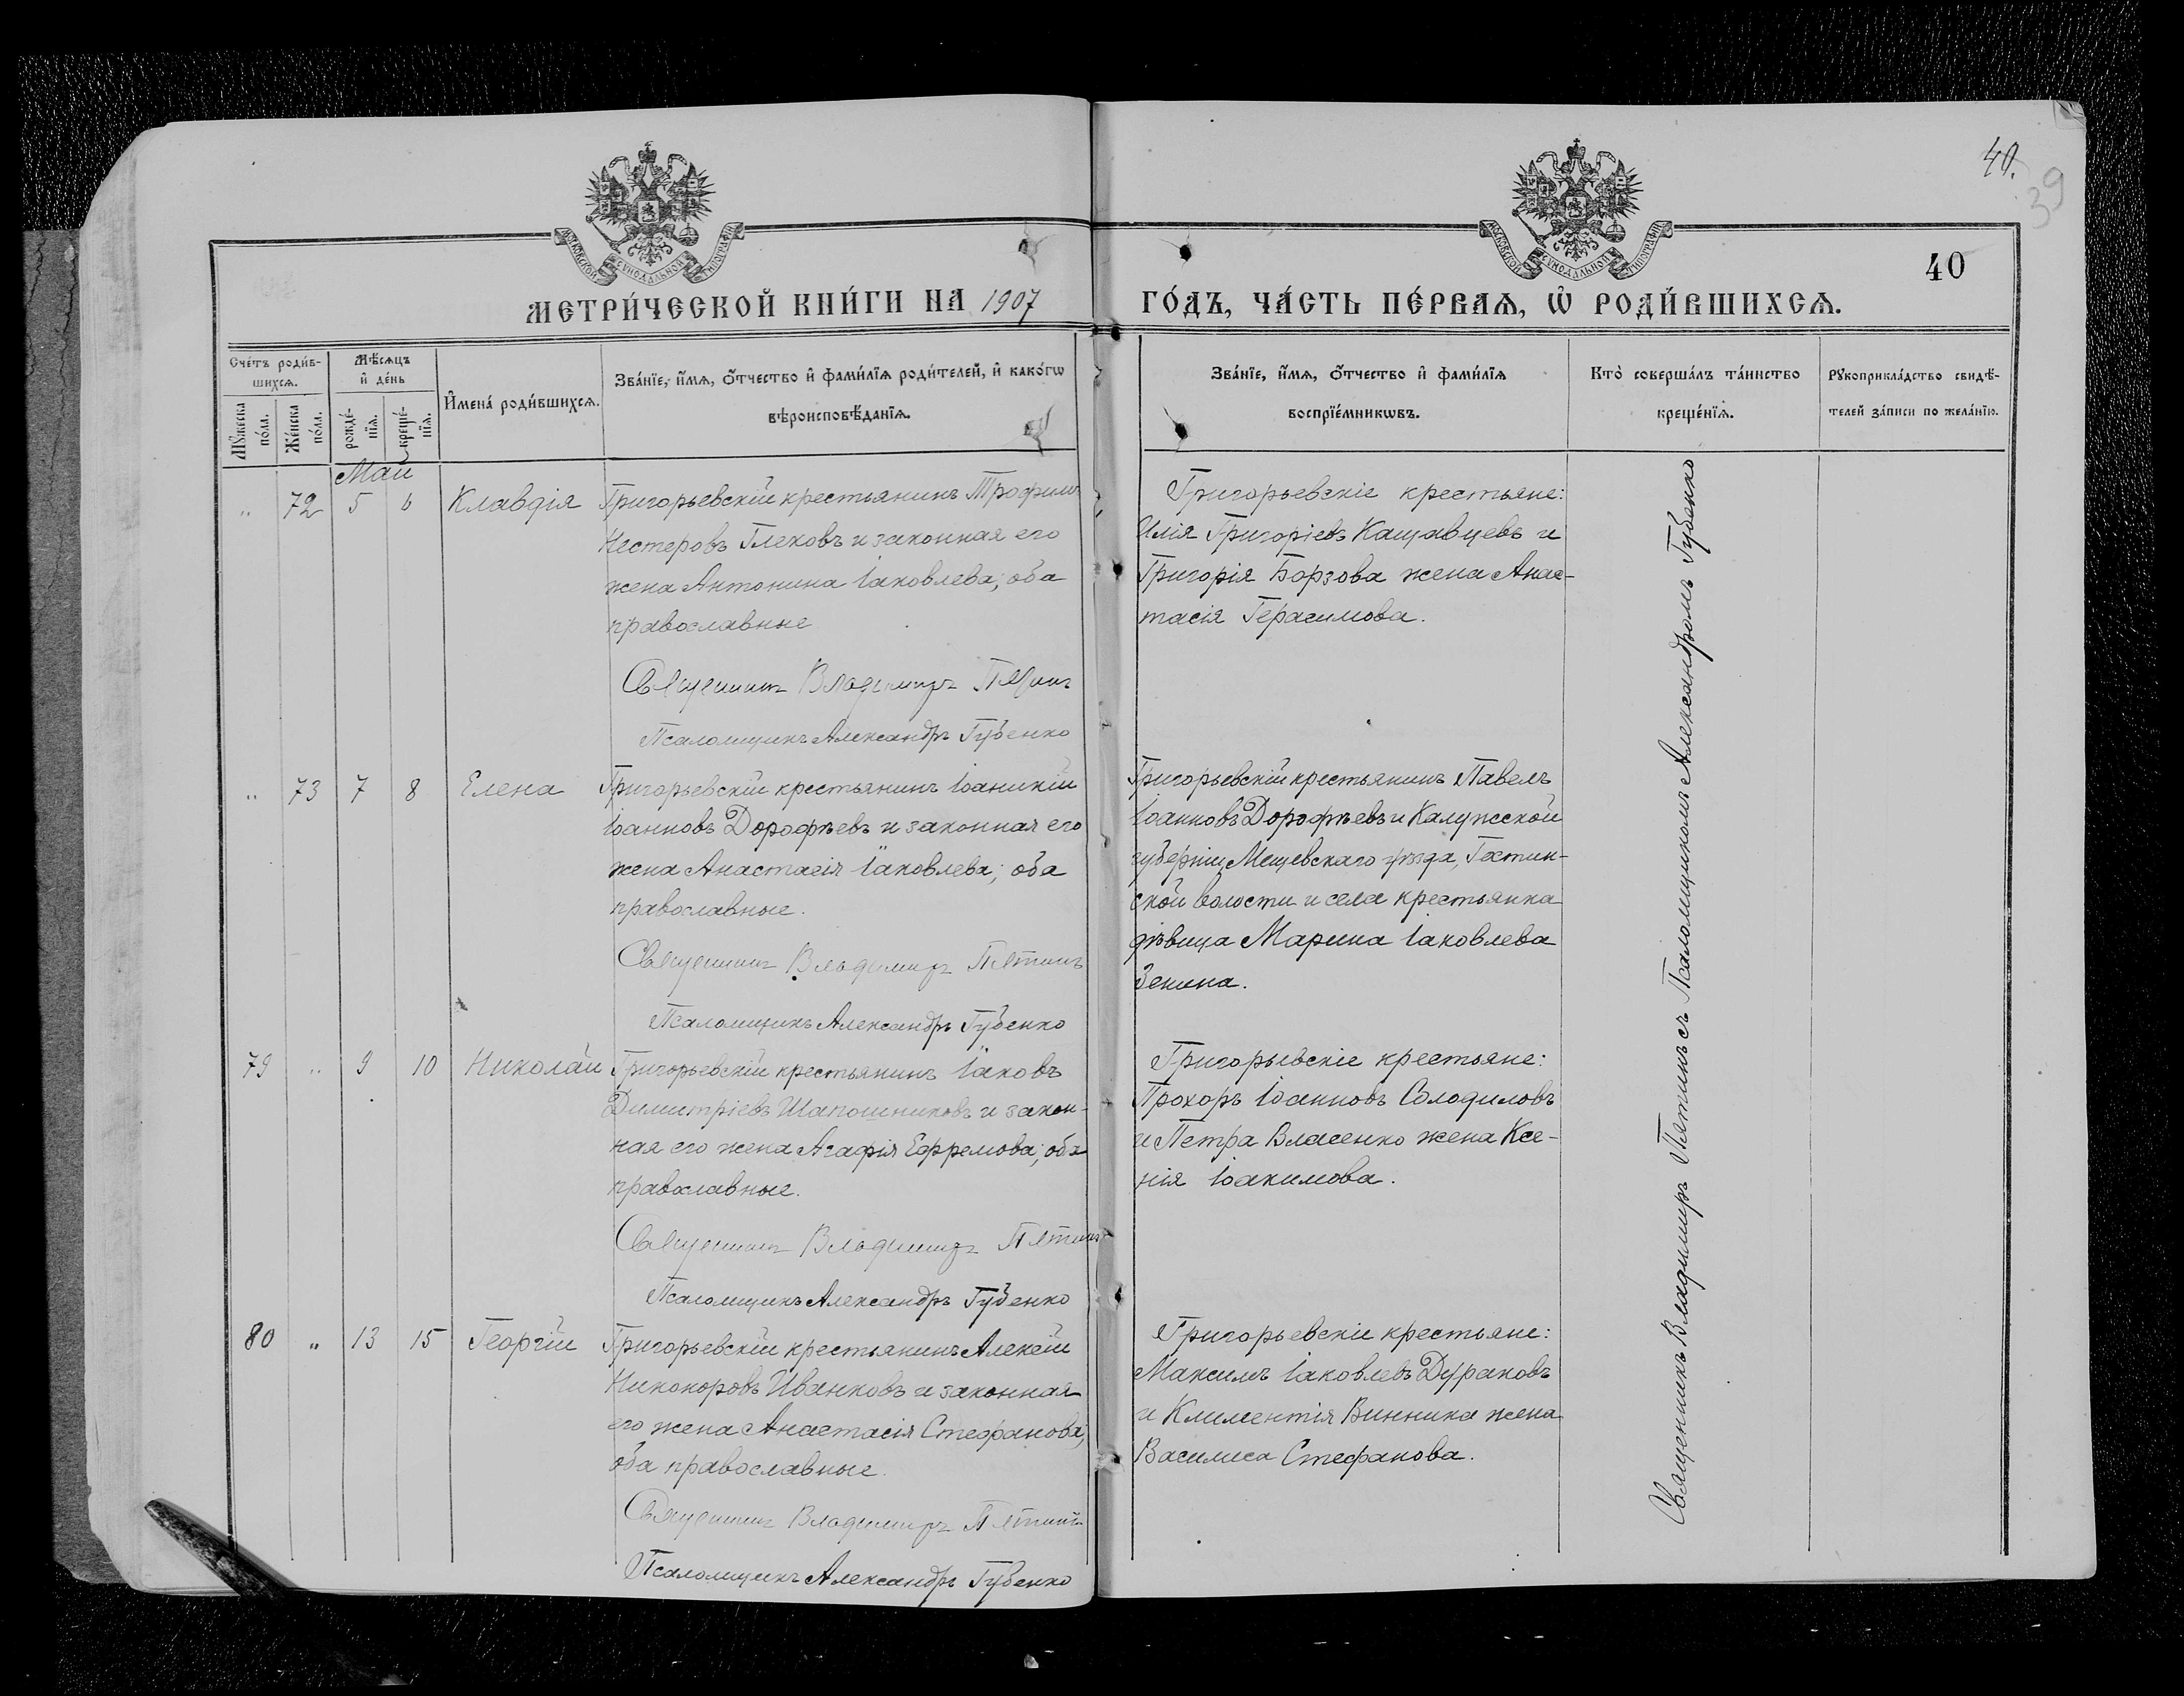 40.
39
МОСКОВСКОЙ СѴНОДАЛЬНОЙ ТИПОГРАФІИ
МОСКОВСКОЙ СѴНОДАЛЬНОЙ ТИПОГРАФІИ
40
МЕТРИ́ЧЕСКОЙ КНИ́ГИ НА 1907
ГО́ДЪ, ЧА́СТЬ ПЕ́РВАѦ, Ѽ РОДИ́ВШИХСѦ.
Сче́тъ роди́в-
шихсѧ.
Мꙋжеска по́ла.
Же́нска по́ла.
Мѣ́сѧцъ
и҆ де́нь
рожде́-
нїѧ.
креще́-
нїѧ.
И҆мена̀ роди́вшихсѧ.
Зва́нїе, и҆́мѧ, ѻ҆́тчество и҆ фами́лїѧ роди́телей, и҆ како́гѡ
вѣроисповѣ́данїѧ.
Зва́нїе, и҆́мѧ, ѻ҆́тчество и҆ фами́лїѧ
воспрїе́мникѡвъ.
Кто̀ соверша́лъ та́инство
креще́нїѧ.
Рꙋкоприкла́дство свидѣ́-
телей за́писи по жела́нїю.
Май
" 72 5 6 Клавдія
Григорьевскій крестьянинъ Трофимъ
Нестеровъ Глековъ и законная его
жена Антонина Іаковлева; оба
православные
Священникъ Владимиръ Пятинъ
Псаломщикъ Александръ Губенко
Григорьевскіе крестьяне:
Илія Григоріевъ Кащавцевъ и
Григорія Борзова жена Анас-
тасія Герасимова.
" 73 7 8 Елена
Григорьевскій крестьянинъ Іоаникій
Іоанновъ Дорофѣевъ и законная его
жена Анастасія Іаковлева; оба
православные.
Священникъ Владимиръ Пятинъ
Псаломщикъ Александръ Губенко
Григорьевскій крестьянинъ Павелъ
Іоанновъ Дорофѣевъ и Калужской
губерніи, Мещевскаго уѣзда, Гостин-
ской волости и села крестьянка
дѣвица Марина Іаковлева
Зенина.
79 " 9 10 Николай
Григорьевскій крестьянинъ Іаковъ
Димитріевъ Шапошниковъ и закон-
ная его жена Агафія Ефремова; оба
православные.
Священникъ Владимиръ Пятинъ
Псаломщикъ Александръ Губенко
Григорьевскіе крестьяне:
Прохоръ Іоанновъ Солодиловъ
и Петра Власенко жена Ксе-
нія Іоакимова.
80 " 13 15 Георгій
Григорьевскій крестьянинъ Алексій
Никоноровъ Иванковъ и законная
его жена Анастасія Стефанова;
оба православные.
Священникъ Владимиръ Пятинъ
Псаломщикъ Александръ Губенко
Григорьевскіе крестьяне:
Максимъ Іаковлевъ Дураковъ
и Климентія Винника жена
Василиса Стефанова.
Священникъ Владимиръ Пятинъ съ Псаломщикомъ Александромъ Губенко